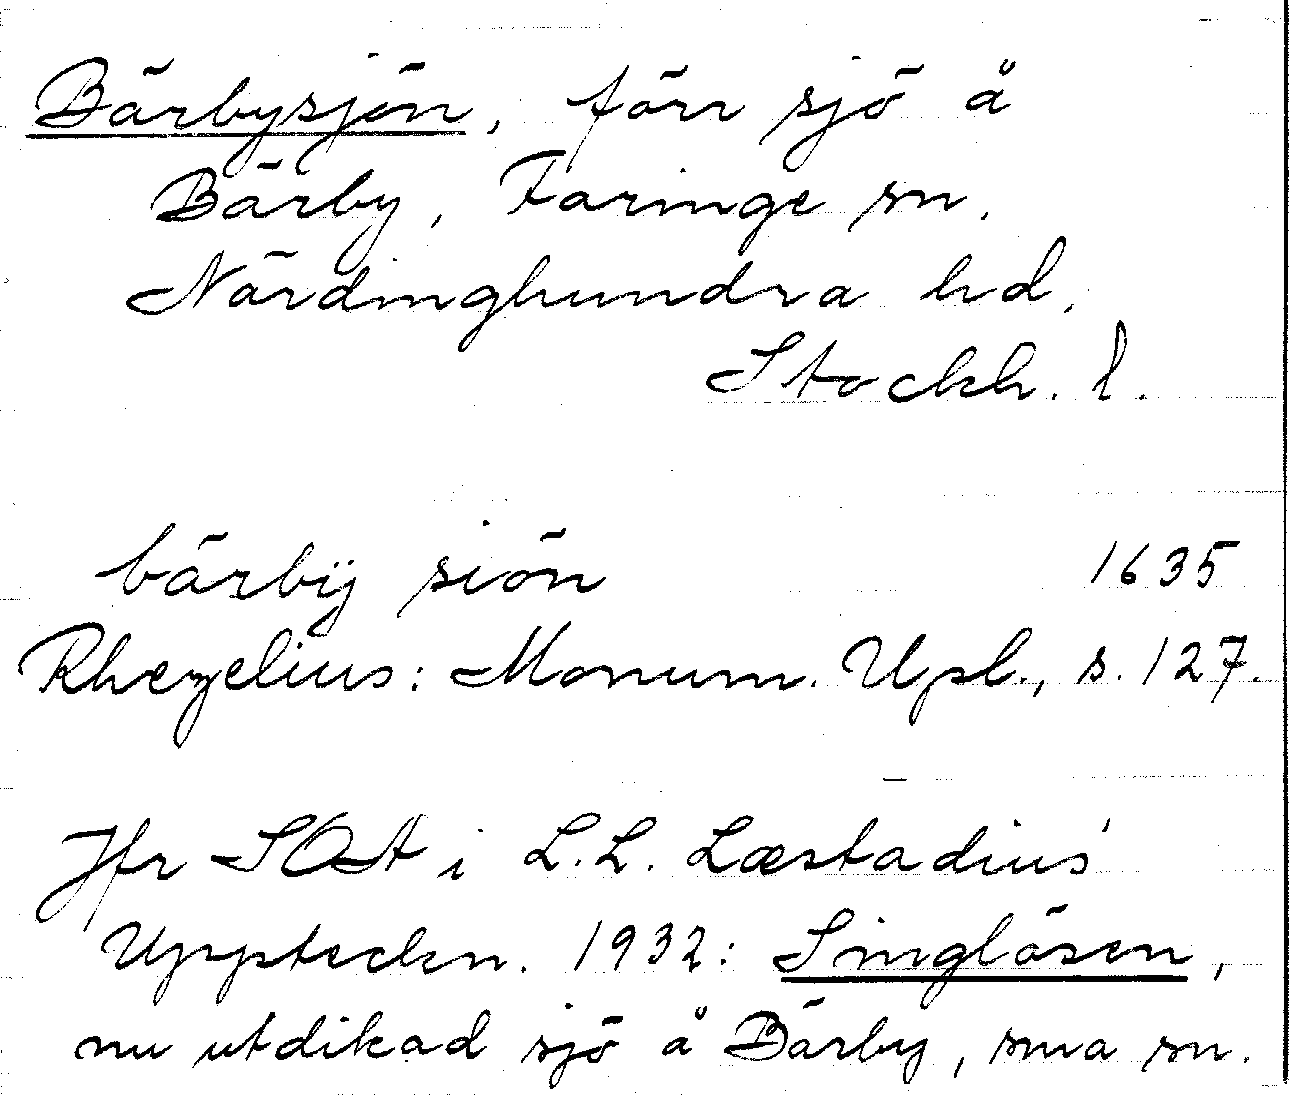 Bärbysjön, förr sjö å
Bärby, Faringe sn,
Närdinghundra hd,
Stockh. l.
bärbÿ siön 1635
Rhezelius: Monum. Upl., s. 127.
Jfr SOA i L.L. Læstadius'
Uppteckn. 1932: Singlösen,
nu utdikad sjö å Bärby, sma sn.